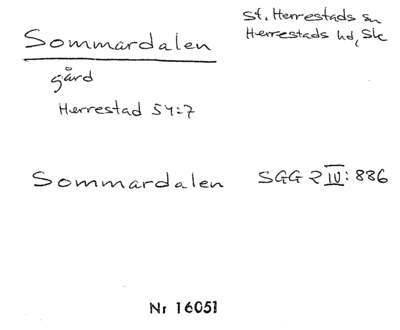 Sommardalen
St. Herrestads sn
Herrestads hd, Sk
gård
Herrestad 54:7
Sommardalen SGG 2 IV: 886
Nr 16051